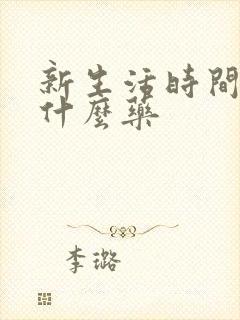 新生活時間
什麼藥
李璐